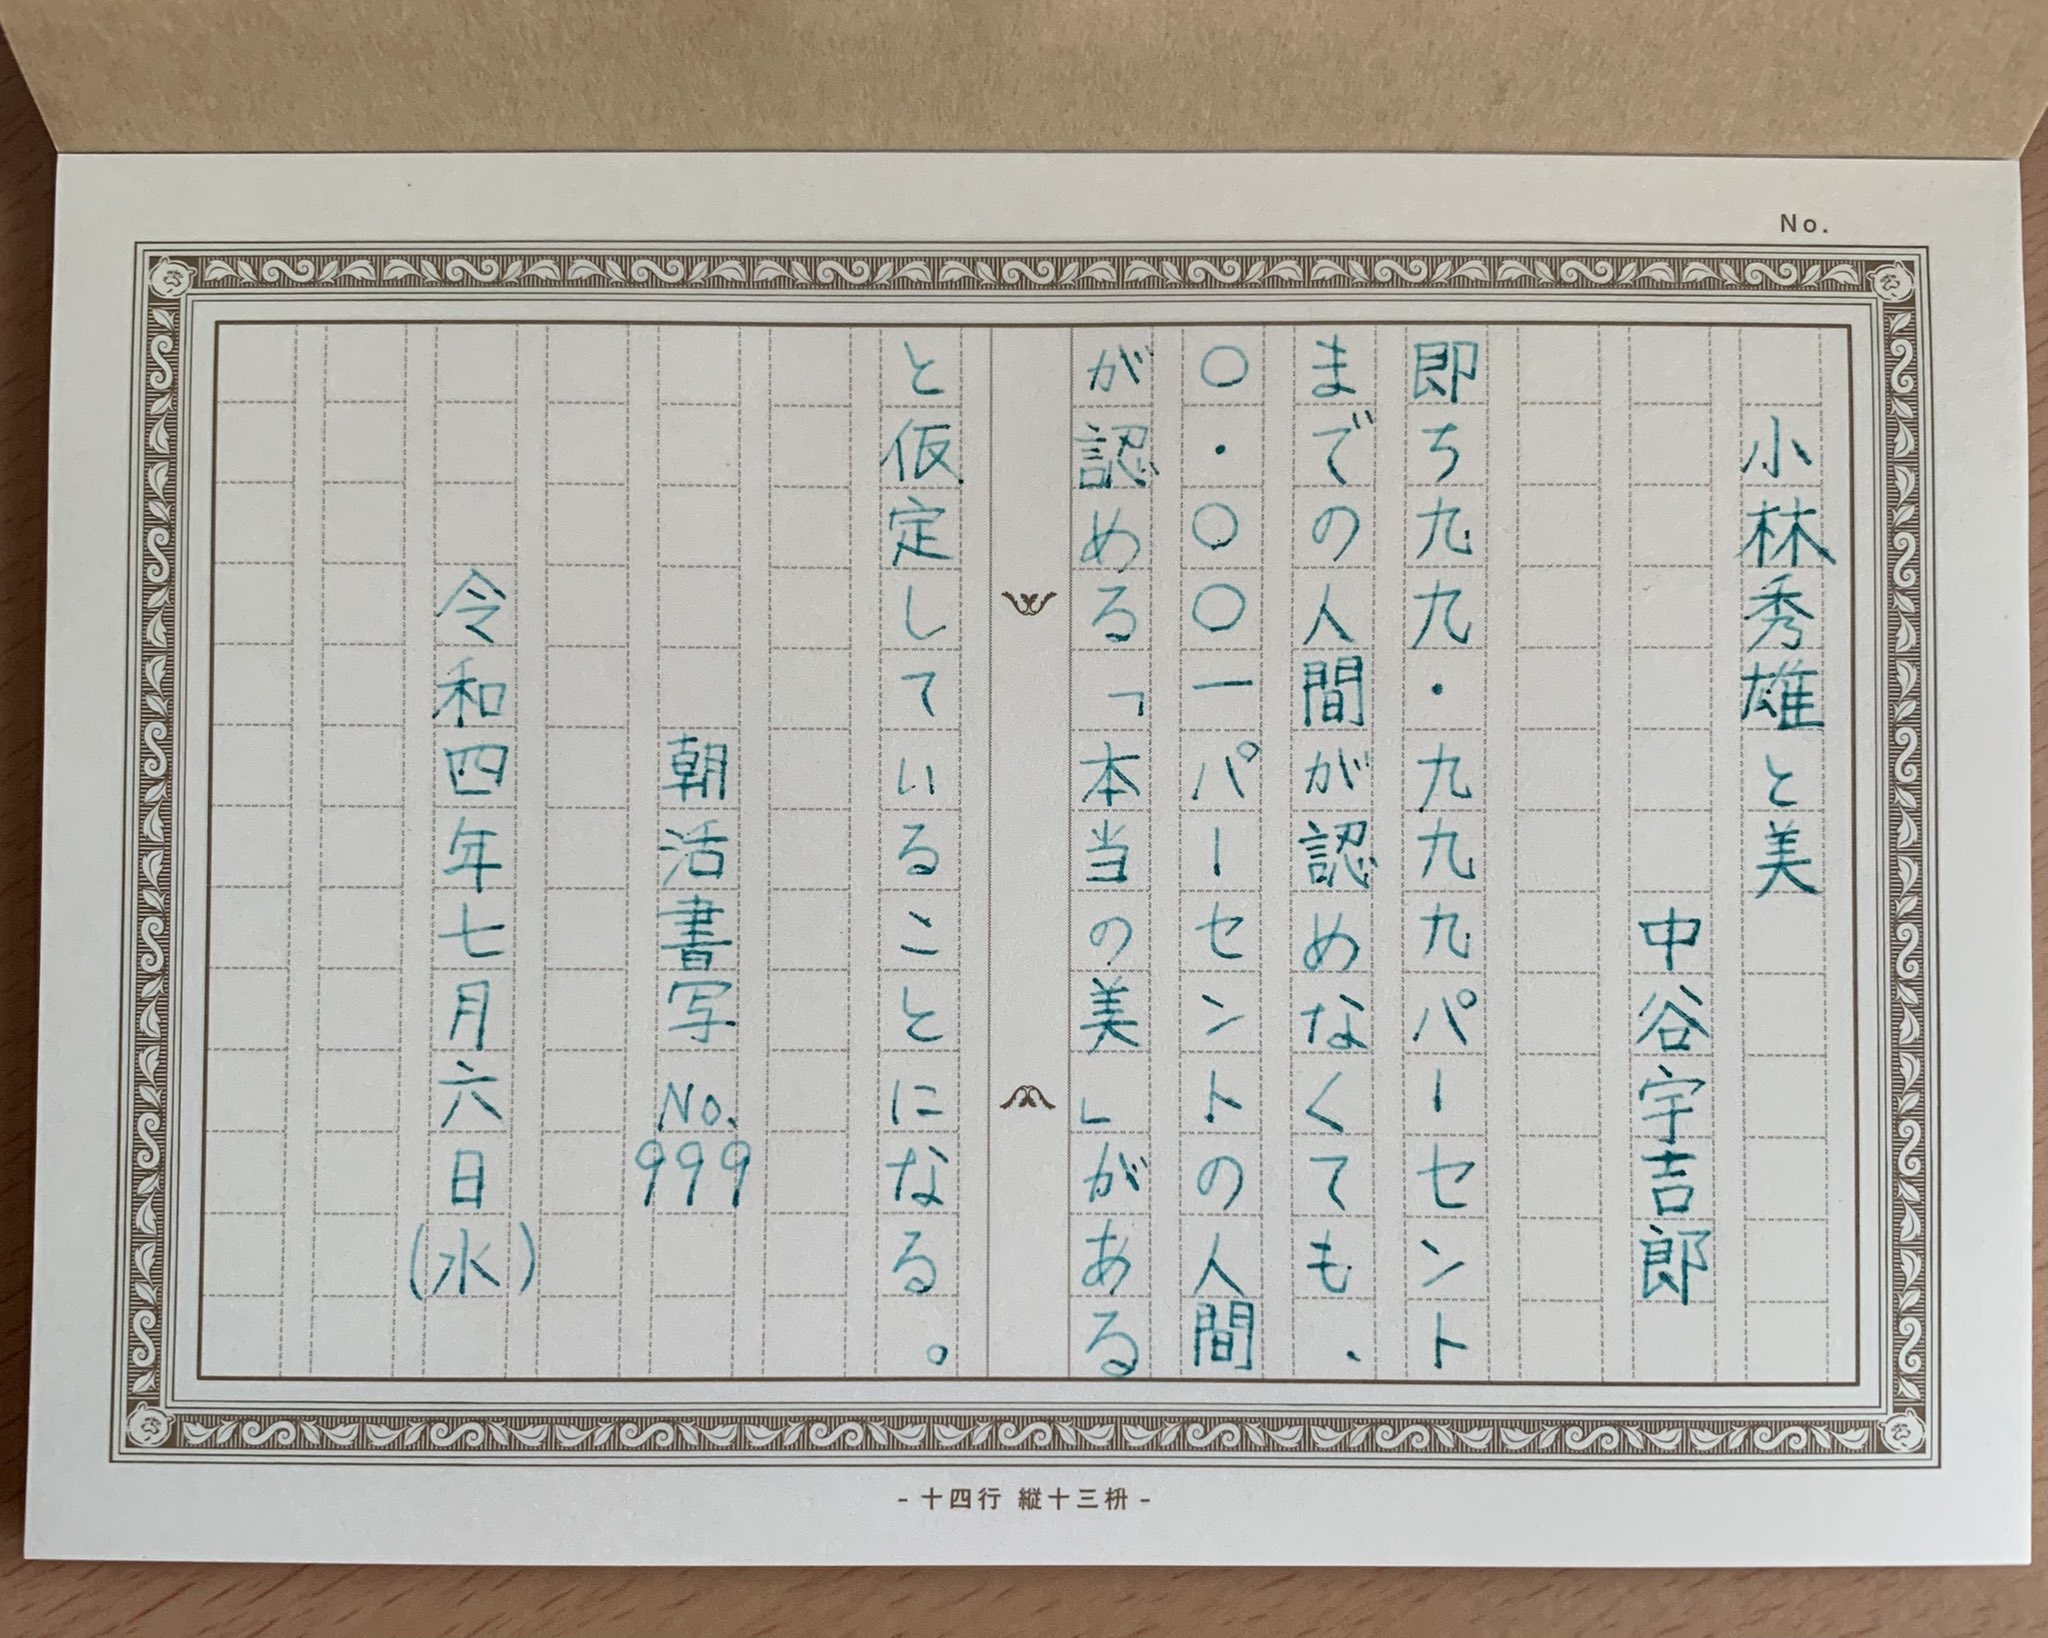 No.
小林秀雄と美
中谷宇吉郎
即ち九九・九九九パーセント
までの人間が認めなくても、
〇・〇〇一パーセントの人間
が認める「本当の美」がある
と仮定していることになる。
朝活書写 No. 999
令和四年七月六日(水)
- 十四行 縦十三枡 -